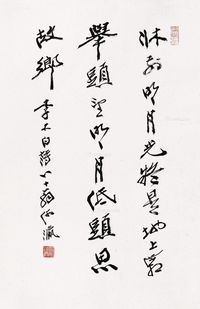 牀前明月光疑是地上霜
舉頭望明月低頭思
故鄉
李太白詩八十翁